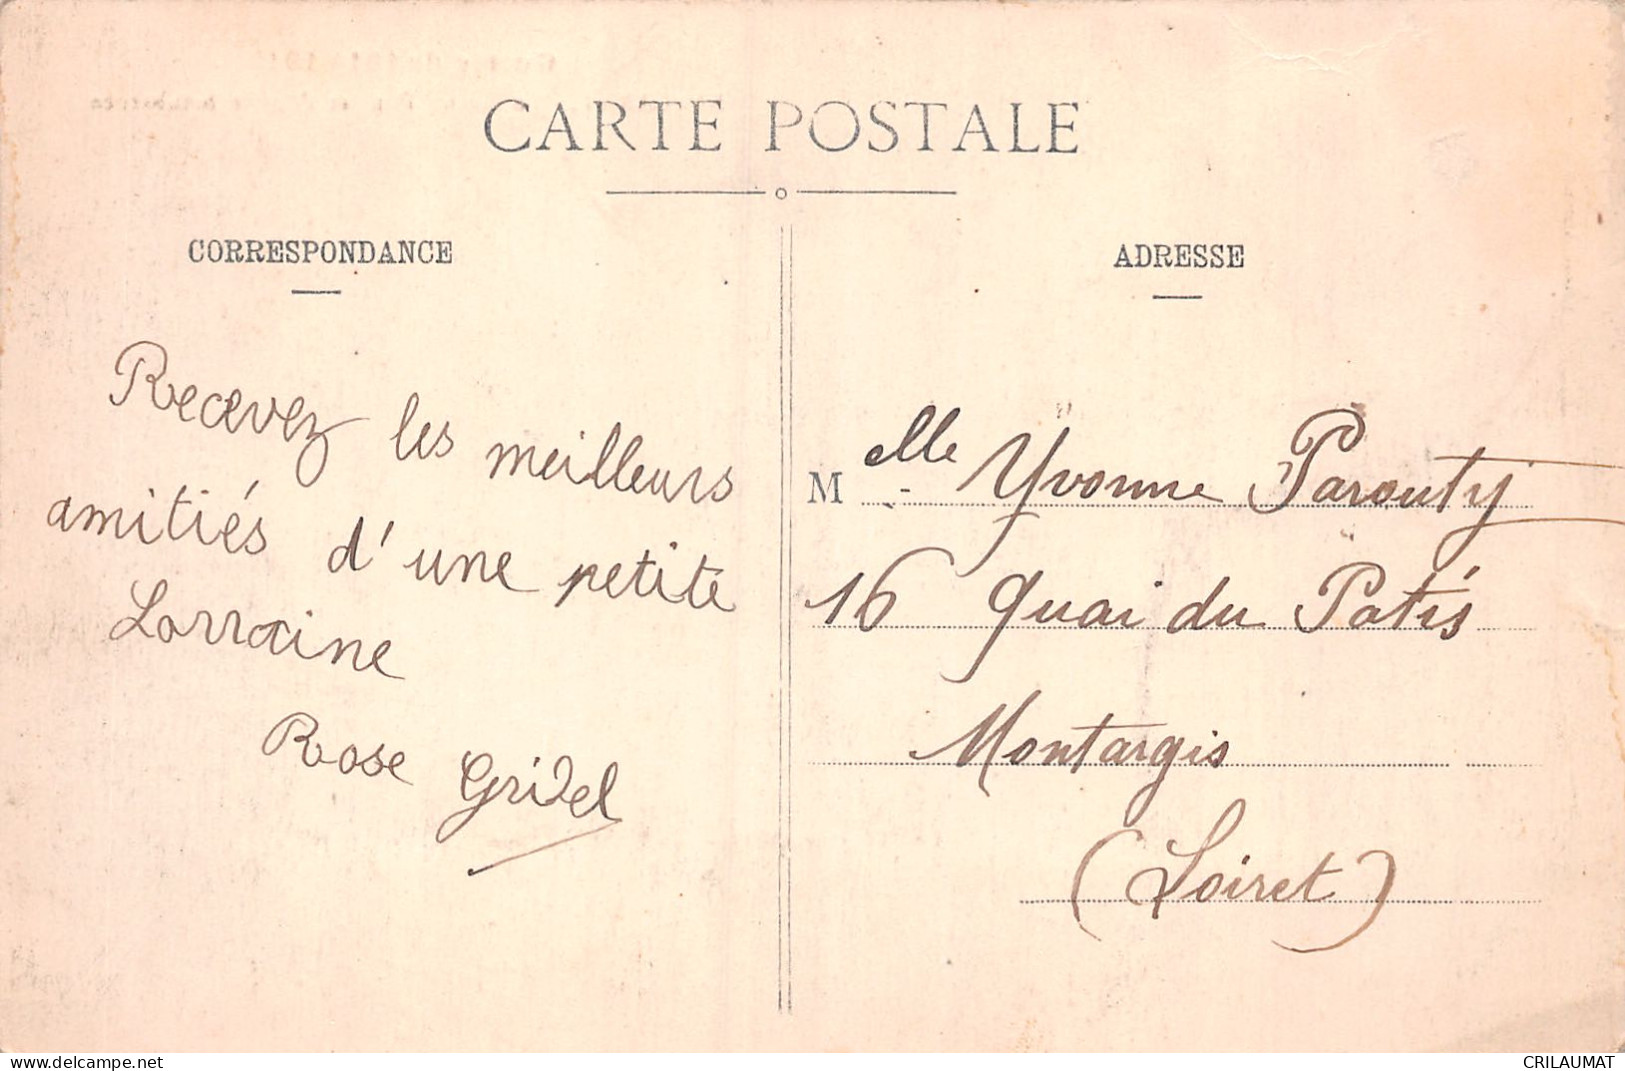 CARTE POSTALE
CORRESPONDANCE
Recevez les meilleurs
amitiés d'une petite
Lorraine
Rose Gridel
ADRESSE
Melle Yvonne Parouty
16 Quai du Patis
Montargis
(Loiret)
www.delcampe.net
CRILAUMAT